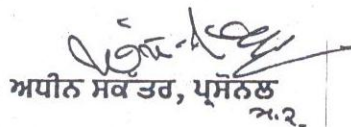 ਅਧੀਨ ਸਕੱਤਰ, ਪ੍ਰਸੋਨਲ
ਅ.ਨ.